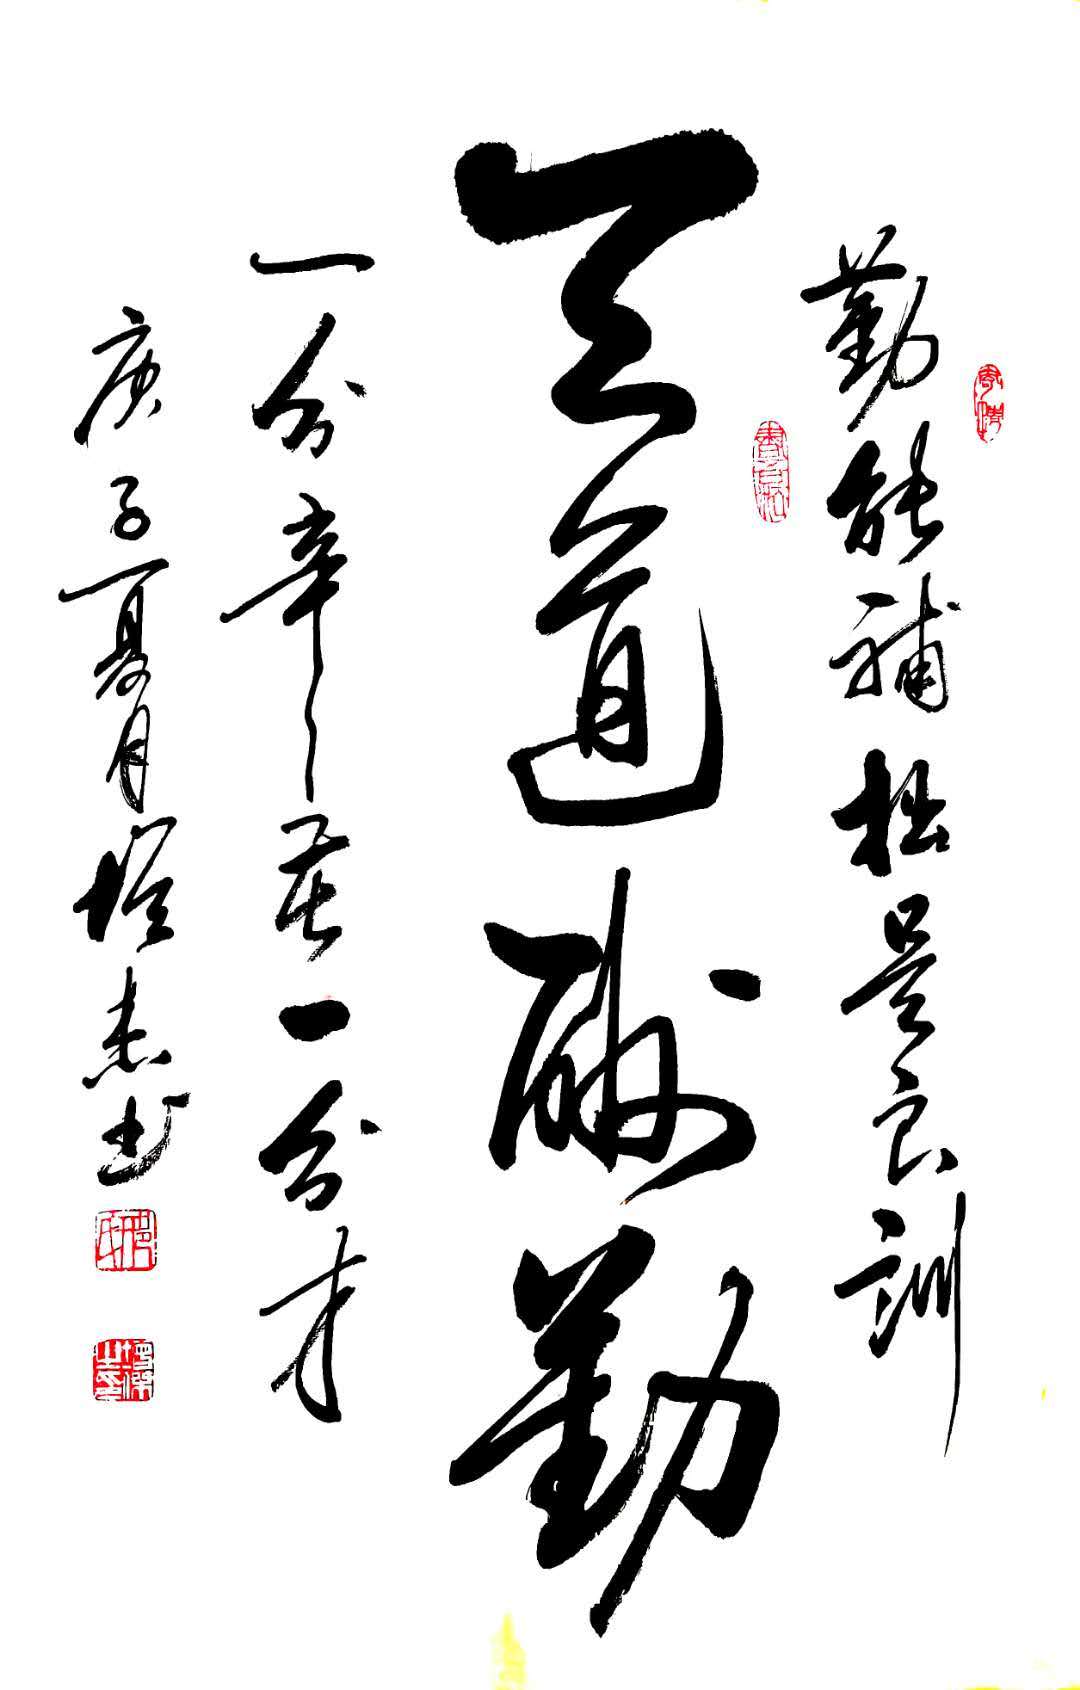 勤能补拙是良训
天道酬勤
一分辛苦一分才
庚子夏月培杰书